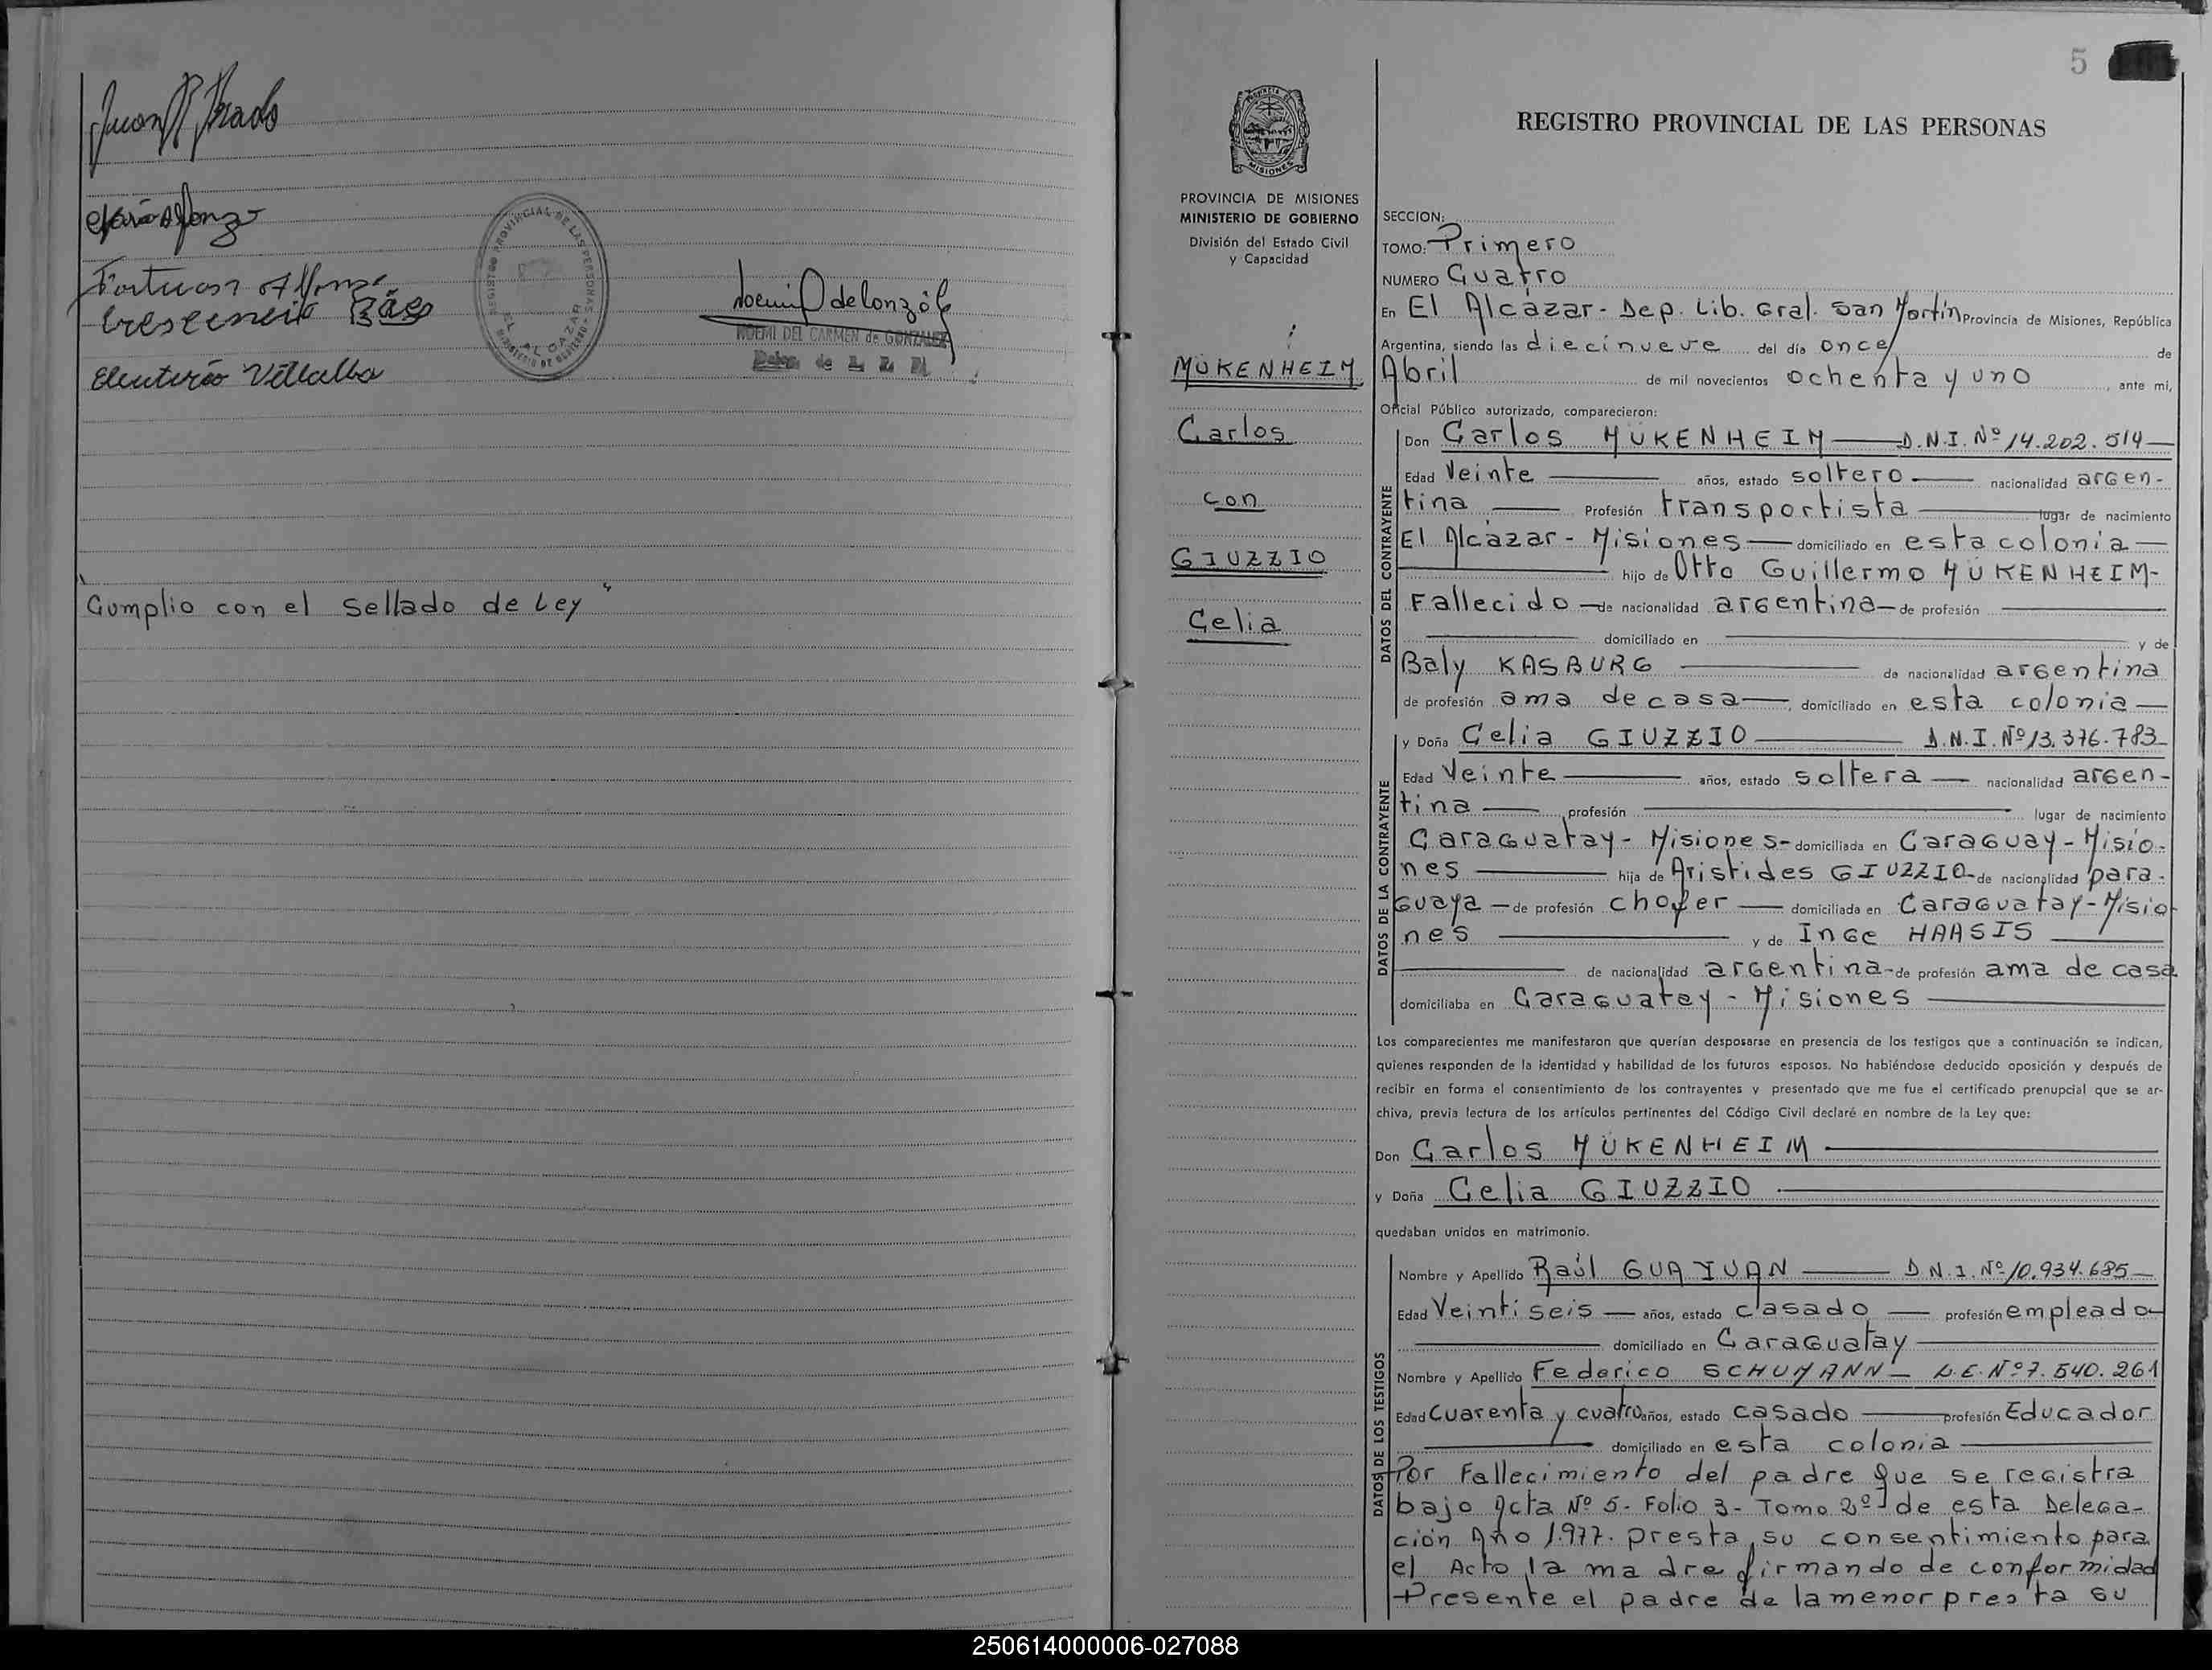 Juan Prado
Maria Afonzo
Crescencio Báez
Eleuterio Villalba
REGISTRO PROVINCIAL DE LAS PERSONAS
EL ALCAZAR
MINISTERIO DE GOBIERNO
Noemi P de Gonzáles
NOEMI DEL CARMEN de GONZALEZ
"Cumplio con el sellado de Ley"
5
PROVINCIA DE
MISIONES
PROVINCIA DE MISIONES
MINISTERIO DE GOBIERNO
División del Estado Civil
y Capacidad
MÜKENHEIM
Carlos
con
GIUZZIO
Celia
REGISTRO PROVINCIAL DE LAS PERSONAS
SECCION:
TOMO: Primero
NUMERO Cuatro
En El Alcázar - Dep. Lib. Gral. San Martín Provincia de Misiones, República
Argentina, siendo las diecinueve del día once de
Abril de mil novecientos ochenta y uno, ante mi,
Oficial Público autorizado, comparecieron:
DATOS DEL CONTRAYENTE
Don Carlos MÜKENHEIM — D.N.I. Nº 14.202.514 —
Edad Veinte — años, estado soltero — nacionalidad argen-
tina — Profesión transportista — lugar de nacimiento
El Alcázar - Misiones — domiciliado en esta colonia —
— hijo de Otto Guillermo MÜKENHEIM -
Fallecido — de nacionalidad argentina — de profesión —
— domiciliado en — y de
Baly KASBURG — de nacionalidad argentina
de profesión ama de casa —, domiciliado en esta colonia —
DATOS DE LA CONTRAYENTE
y Doña Celia GIUZZIO — D.N.I. Nº 13.376.783 —
Edad Veinte — años, estado soltera — nacionalidad argen-
tina — profesión — lugar de nacimiento
Caraguatay - Misiones - domiciliada en Caraguay - Misio-
nes — hija de Aristides GIUZZIO - de nacionalidad para-
guaya — de profesión chofer — domiciliada en Caraguatay - Misio
nes — y de Inge HAASIS —
— de nacionalidad argentina - de profesión ama de casa
domiciliaba en Caraguatay - Misiones —
Los comparecientes me manifestaron que querían desposarse en presencia de los testigos que a continuación se indican,
quienes responden de la identidad y habilidad de los futuros esposos. No habiéndose deducido oposición y después de
recibir en forma el consentimiento de los contrayentes y presentado que me fue el certificado prenupcial que se ar-
chiva, previa lectura de los artículos pertinentes del Código Civil declaré en nombre de la Ley que:
Don Carlos MÜKENHEIM —
y Doña Celia GIUZZIO —
quedaban unidos en matrimonio.
DATOS DE LOS TESTIGOS
Nombre y Apellido Raúl GUAYUAN — D.N.I. Nº 10.934.685 —
Edad Veintiseis — años, estado casado — profesión empleado —
— domiciliado en Caraguatay —
Nombre y Apellido Federico SCHUMANN — L.E. Nº 7.540.261
Edad Cuarenta y cuatro años, estado casado — profesión Educador
— domiciliado en esta colonia —
Por Fallecimiento del padre que se registra
bajo Acta Nº 5 - Folio 3 - Tomo 2º de esta Delega-
ción Año 1.977. presta su consentimiento para
el Acto la madre firmando de conformidad
Presente el padre de la menor presta su
250614000006-027088